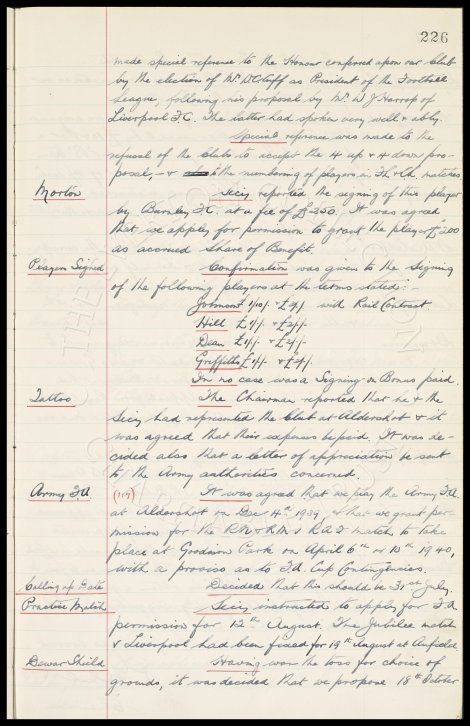 226
made special reference to the Honour conferred upon our Club
by the election of Mr. W.C. Cuff as President of the Football
League, following his proposal by Mr. W J Harrop of
Liverpool F.C. The latter had spoken very well & ably.
Special reference was made to the
refusal of the Clubs to accept the 4 up & 4 down pro-
posal, - & to the numbering of players in matches
Morton Secy. reported the signing of this player
by Burnley F.C. at a fee of £250. It was agreed
that we apply for permission to grant the player £200
as accrued share of Benefit.
Players Signed Confirmation was given to the signing
of the following players at the terms stated:-
£1/10/- & £2/- with Rail Contract
Hill £1/- & £2/-
Dean £1/- & £2/-
Griffiths £1/- & £2/-
In no case was a Signing on Bonus paid.
Tattoo The Chairman reported that he & the
Secy. had represented the Club at Aldershot & it
was agreed that their expenses be paid. It was de-
cided also that a letter of appreciation be sent
to the Army authorities concerned.
Army F.A. It was agreed that we play the Army F.A.
at Aldershot on Dec 4th 1939, & that we grant per-
mission for the R.N. & R.M. v R.A.F. match to take
place at Goodison Park on April 6th or 13th 1940,
with a proviso as to F.A. Cup Contingencies.
Calling up Date Decided that this should be 31st July.
Practice Match Secy. instructed to apply for F.A.
permission for 12th August. The Jubilee match
v Liverpool had been fixed for 19th August at Anfield.
Dewar Shield Having won the toss for choice of
grounds, it was decided that we propose 18th October